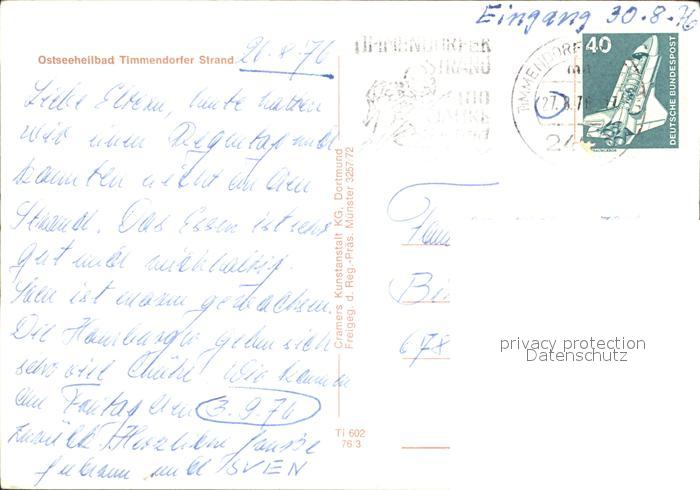 Eingang 30.8.76
Ostseeheilbad Timmendorfer Strand 26.8.76
TIMMENDORFER
STRAND
TIMMENDORFER
27.8.76
24
40
DEUTSCHE BUNDESPOST
Liebe Eltern, heute hatten
wir einen Regentag und
konnten nicht an den
Strand. Das Essen ist sehr
gut und reichhaltig.
Sven ist enorm gewachsen.
Die Hamburger geben sich
sehr viel Mühe. Wir kommen
am Freitag den 3.9.76
zurück. Herzliche Grüße
und SVEN
Cramers Kunstanstalt KG, Dortmund
Freigeg. d. Reg.-Präs. Münster 3257/72
Ti 602
76/3
Fam
Bi
678
privacy protection
Datenschutz